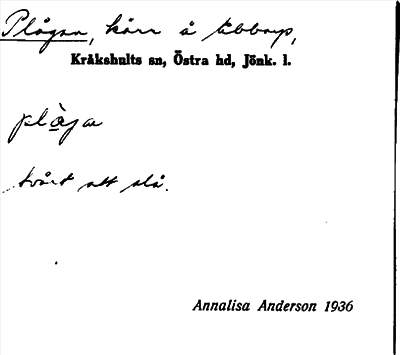 Plågan, kärr å Ubbarp,
Kråkshults sn, Östra hd, Jönk. l.
plåga
svårt att slå.
Annalisa Anderson 1936